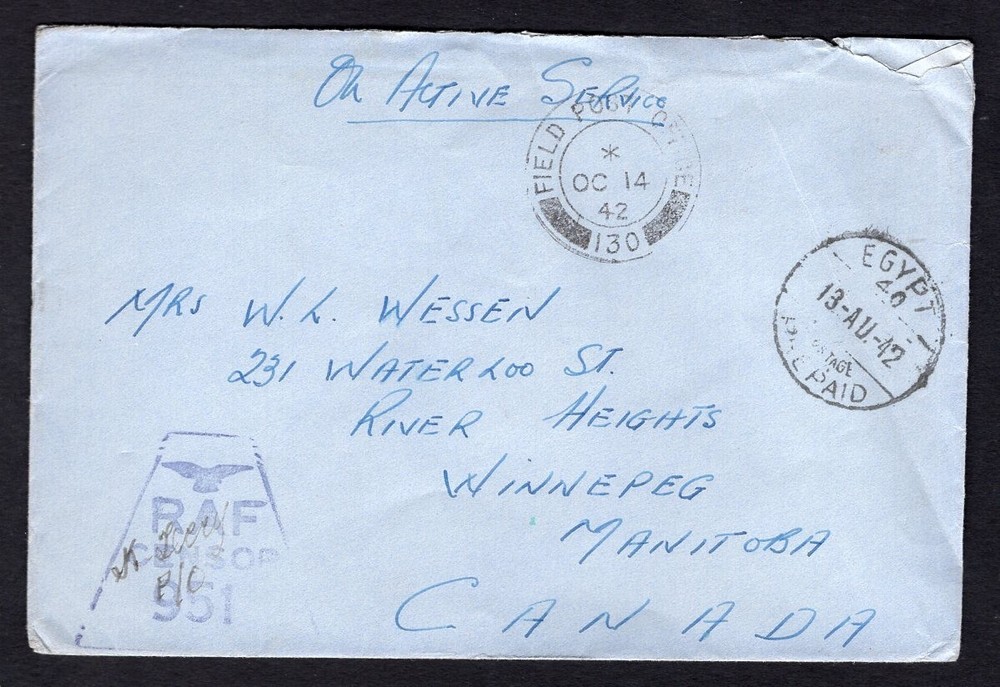 On Active Service
FIELD POST OFFICE
*
OC 14
42
130
EGYPT
40
13-AU.-42
POSTAGE
PREPAID
MRS W. L. WESSEN
231 WATERLOO ST.
RIVER HEIGHTS
WINNEPEG
MANITOBA
CANADA
RAF
CENSOR
951
P/O